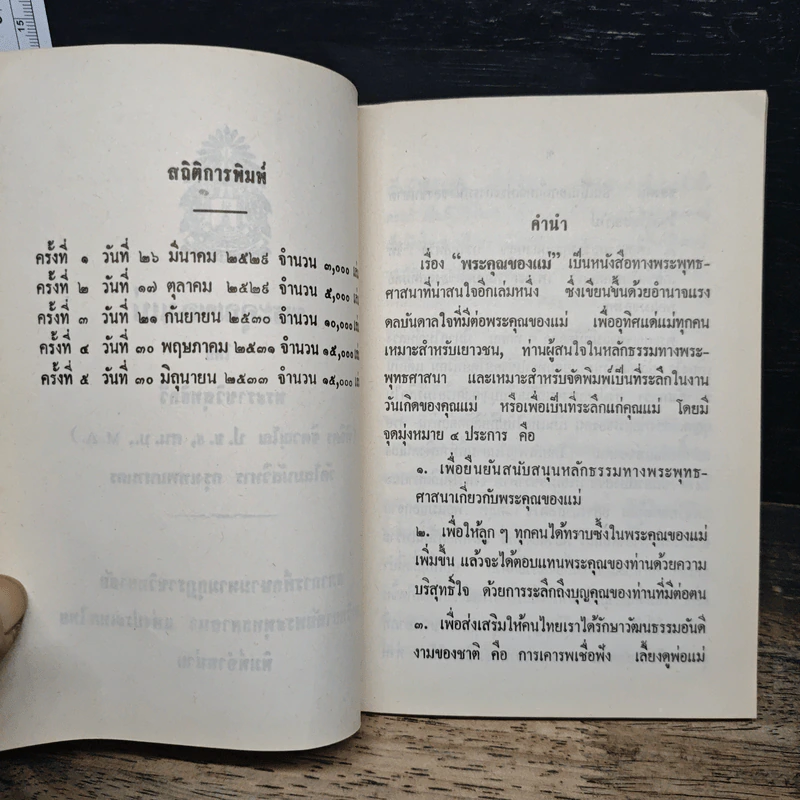 15
สถิติการพิมพ์
ครั้งที่ ๑ วันที่ ๒๖ มีนาคม ๒๕๒๙ จำนวน ๓,๐๐๐
ครั้งที่ ๒ วันที่ ๑๗ ตุลาคม ๒๕๒๙ จำนวน ๕,๐๐๐
ครั้งที่ ๓ วันที่ ๒๑ กันยายน ๒๕๓๐ จำนวน ๑๐,๐๐๐
ครั้งที่ ๔ วันที่ ๓๐ พฤษภาคม ๒๕๓๑ จำนวน ๑๕,๐๐๐
ครั้งที่ ๕ วันที่ ๓๐ มิถุนายน ๒๕๓๓ จำนวน ๑๕,๐๐๐
คำนำ
เรื่อง “พระคุณของแม่” เป็นหนังสือทางพระพุทธ-
ศาสนาที่น่าสนใจอีกเล่มหนึ่ง ซึ่งเขียนขึ้นด้วยอำนาจแรง
ดลบันดาลใจที่มีต่อพระคุณของแม่ เพื่ออุทิศแด่แม่ทุกคน
เหมาะสำหรับเยาวชน, ท่านผู้สนใจในหลักธรรมทางพระ-
พุทธศาสนา และเหมาะสำหรับจัดพิมพ์เป็นที่ระลึกในงาน
วันเกิดของคุณแม่ หรือเพื่อเป็นที่ระลึกแก่คุณแม่ โดยมี
จุดมุ่งหมาย ๔ ประการ คือ
๑. เพื่อยืนยันสนับสนุนหลักธรรมทางพระพุทธ-
ศาสนาเกี่ยวกับพระคุณของแม่
๒. เพื่อให้ลูก ๆ ทุกคนได้ทราบซึ้งในพระคุณของแม่
เพิ่มขึ้น แล้วจะได้ตอบแทนพระคุณของท่านด้วยความ
บริสุทธิ์ใจ ด้วยการระลึกถึงบุญคุณของท่านที่มีต่อตน
๓. เพื่อส่งเสริมให้คนไทยเราได้รักษาวัฒนธรรมอันดี
งามของชาติ คือ การเคารพเชื่อฟัง เลี้ยงดูพ่อแม่